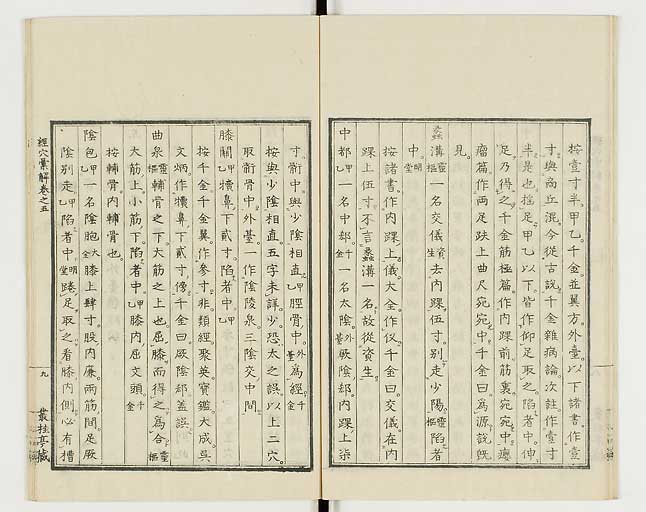 按壹寸半甲乙千金並翼方外臺以下諸書作壹
寸與商丘混今從古說千金雜病論次註作壹寸
半是也搖足甲乙以下皆作仰足取之陷者中伸
足乃得之千金筋極篇作內踝前筋裏宛宛中
瘤篇作兩足趺上曲尺宛宛中千金曰為源說旣
見
蠡溝靈樞一名交儀資生去內踝伍寸別走少陽靈樞陷者
中明堂
按諸書作內踝上儀大全作仪千金曰交儀在內
踝上伍寸不言蠡溝一名故從資生
中都甲乙一名中郄千金一名太陰外臺厥陰郄內踝上柒
寸䯒中與少陰相直甲乙脛骨中外臺為經千金
按與少陰相直五字未詳少恐太之誤以上二穴
取䯒骨中外臺一作陰陵泉三陰交中間
膝關甲乙犢鼻下貳寸陷者中甲乙
按千金千金翼作參寸非類經聚英寶鑑大成吳
文炳作犢鼻下貳寸傍千金曰厥陰郄蓋誤
曲泉靈樞輔骨之下大筋之上也屈膝而得之為合靈樞
大筋上小筋下陷者中甲乙膝內屈文頭千金
按輔骨內輔骨也
陰包甲乙一名陰胞大全膝上肆寸股內廉兩筋間足厥
陰別走甲乙陷者中明堂踡足取之看膝內側必有槽
經穴彙解卷之五
九
叢桂亭藏